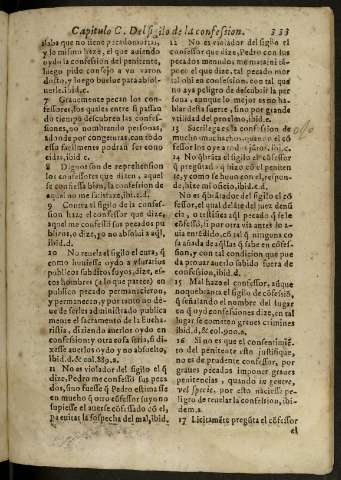 Capitulo C. Del sigilo de la confession. 333
y lo mismo haze, el que auiendo
oydo la confession del penitente,
luego pide consejo a vn varon
docto, y luego buelue para absol-
uerle. ibid.e.
7 Grauemente pecan los con-
fessores, los quales entre si passan
do tiempo descubren las confes-
siones, no nombrando personas,
adonde por congeturas, con todo
esso facilmente podran ser cono
cidas, ibid e.
8 Dignos son de reprehension
los confessores que dizen, aquel
se confiessa bien, la confession de
aquel no me satisfaze, ibid.d.
9 Contra el sigilo de la confes-
sion haze el confessor que dize,
aquel me confessò sus pecados pu
blicos, o dize, yo no absolui a aq̃l,
ibid.d.
10 No reuela el sigilo el cura, q̃
como huuiesse oydo a vsurarios
publicos subditos suyos, dize, es-
tos hombres (a lo que parece) en
publico pecado permanecieron,
y permanecen, y por tanto no de-
ue de serles administrado publica
mente el sacramento de la Eucha-
ristia, diziendo auerlos oydo en
confession: y otra cosa seria, si di-
xesse auerlos oydo y no absuelto,
ibid.d. & col.889.a.
11 No es violador del sigilo el q̃
dize, Pedro me confessò sus peca
dos, sino fuesse q̃ Pedro estima sse
en mucho q̃ otro cõfessor suyo no
supiesse el auerse cõfessado cõ el,
pa euitar la sospecha del mal, ibid.
12 No es violador del sigilo el
confessor que dize, Pedro con los
pecados menudos me mata: ni tã-
poco el que dize, tal pecado mor
tal oì en confession, con tal que
no aya peligro de descubrir la per
sona, aunque lo mejor es no ha-
blar dessa suerte, sino por grande
vtilidad del proximo, ibid.e.
13 Sucillegar es, la confession de
mucho
fessor los oye a todos juros, ibi.c.
14 No q̃branta el sigilo el cõfessor
q̃ preguntado q̃ hizo cõ el peniten
te, y como se huuo con el, respon-
de, hize mi oficio, ibid.e.d.
No es quebrãtador del sigilo el cõ
fessor, el qual delãte del juez denũ
cia, o testifica aq̃l pecado q̃ se le
confessò, si por otra via antes lo a-
uia entẽdido, cõ tal q̃ ninguna co
sa añada de aq̃llas q̃ sabe en cõfes-
sion, y con tal condicion que pue
da prouar auerlo sabido fuera de
confession, ibid.d.
15 Mal haze el confessor, aũque
no quebranta el sigilo de cõfessiõ,
q̃ señalando el nombre del lugar
en q̃ oyò confessiones dize, en tal
lugar se cometen graues crimines
ibid.d, & col.900.a.
16 Si no es que el consentimiẽ-
to del penitente esto justifique,
no es de prudente confessor, por
graues pecados imponer graues
penitencias, quando ex genere,
vel specie, por esto naciesse pe-
ligro de reuelar la confession, ibi-
dem.a.
17 Licitamẽte pregũta el cõfessor
el